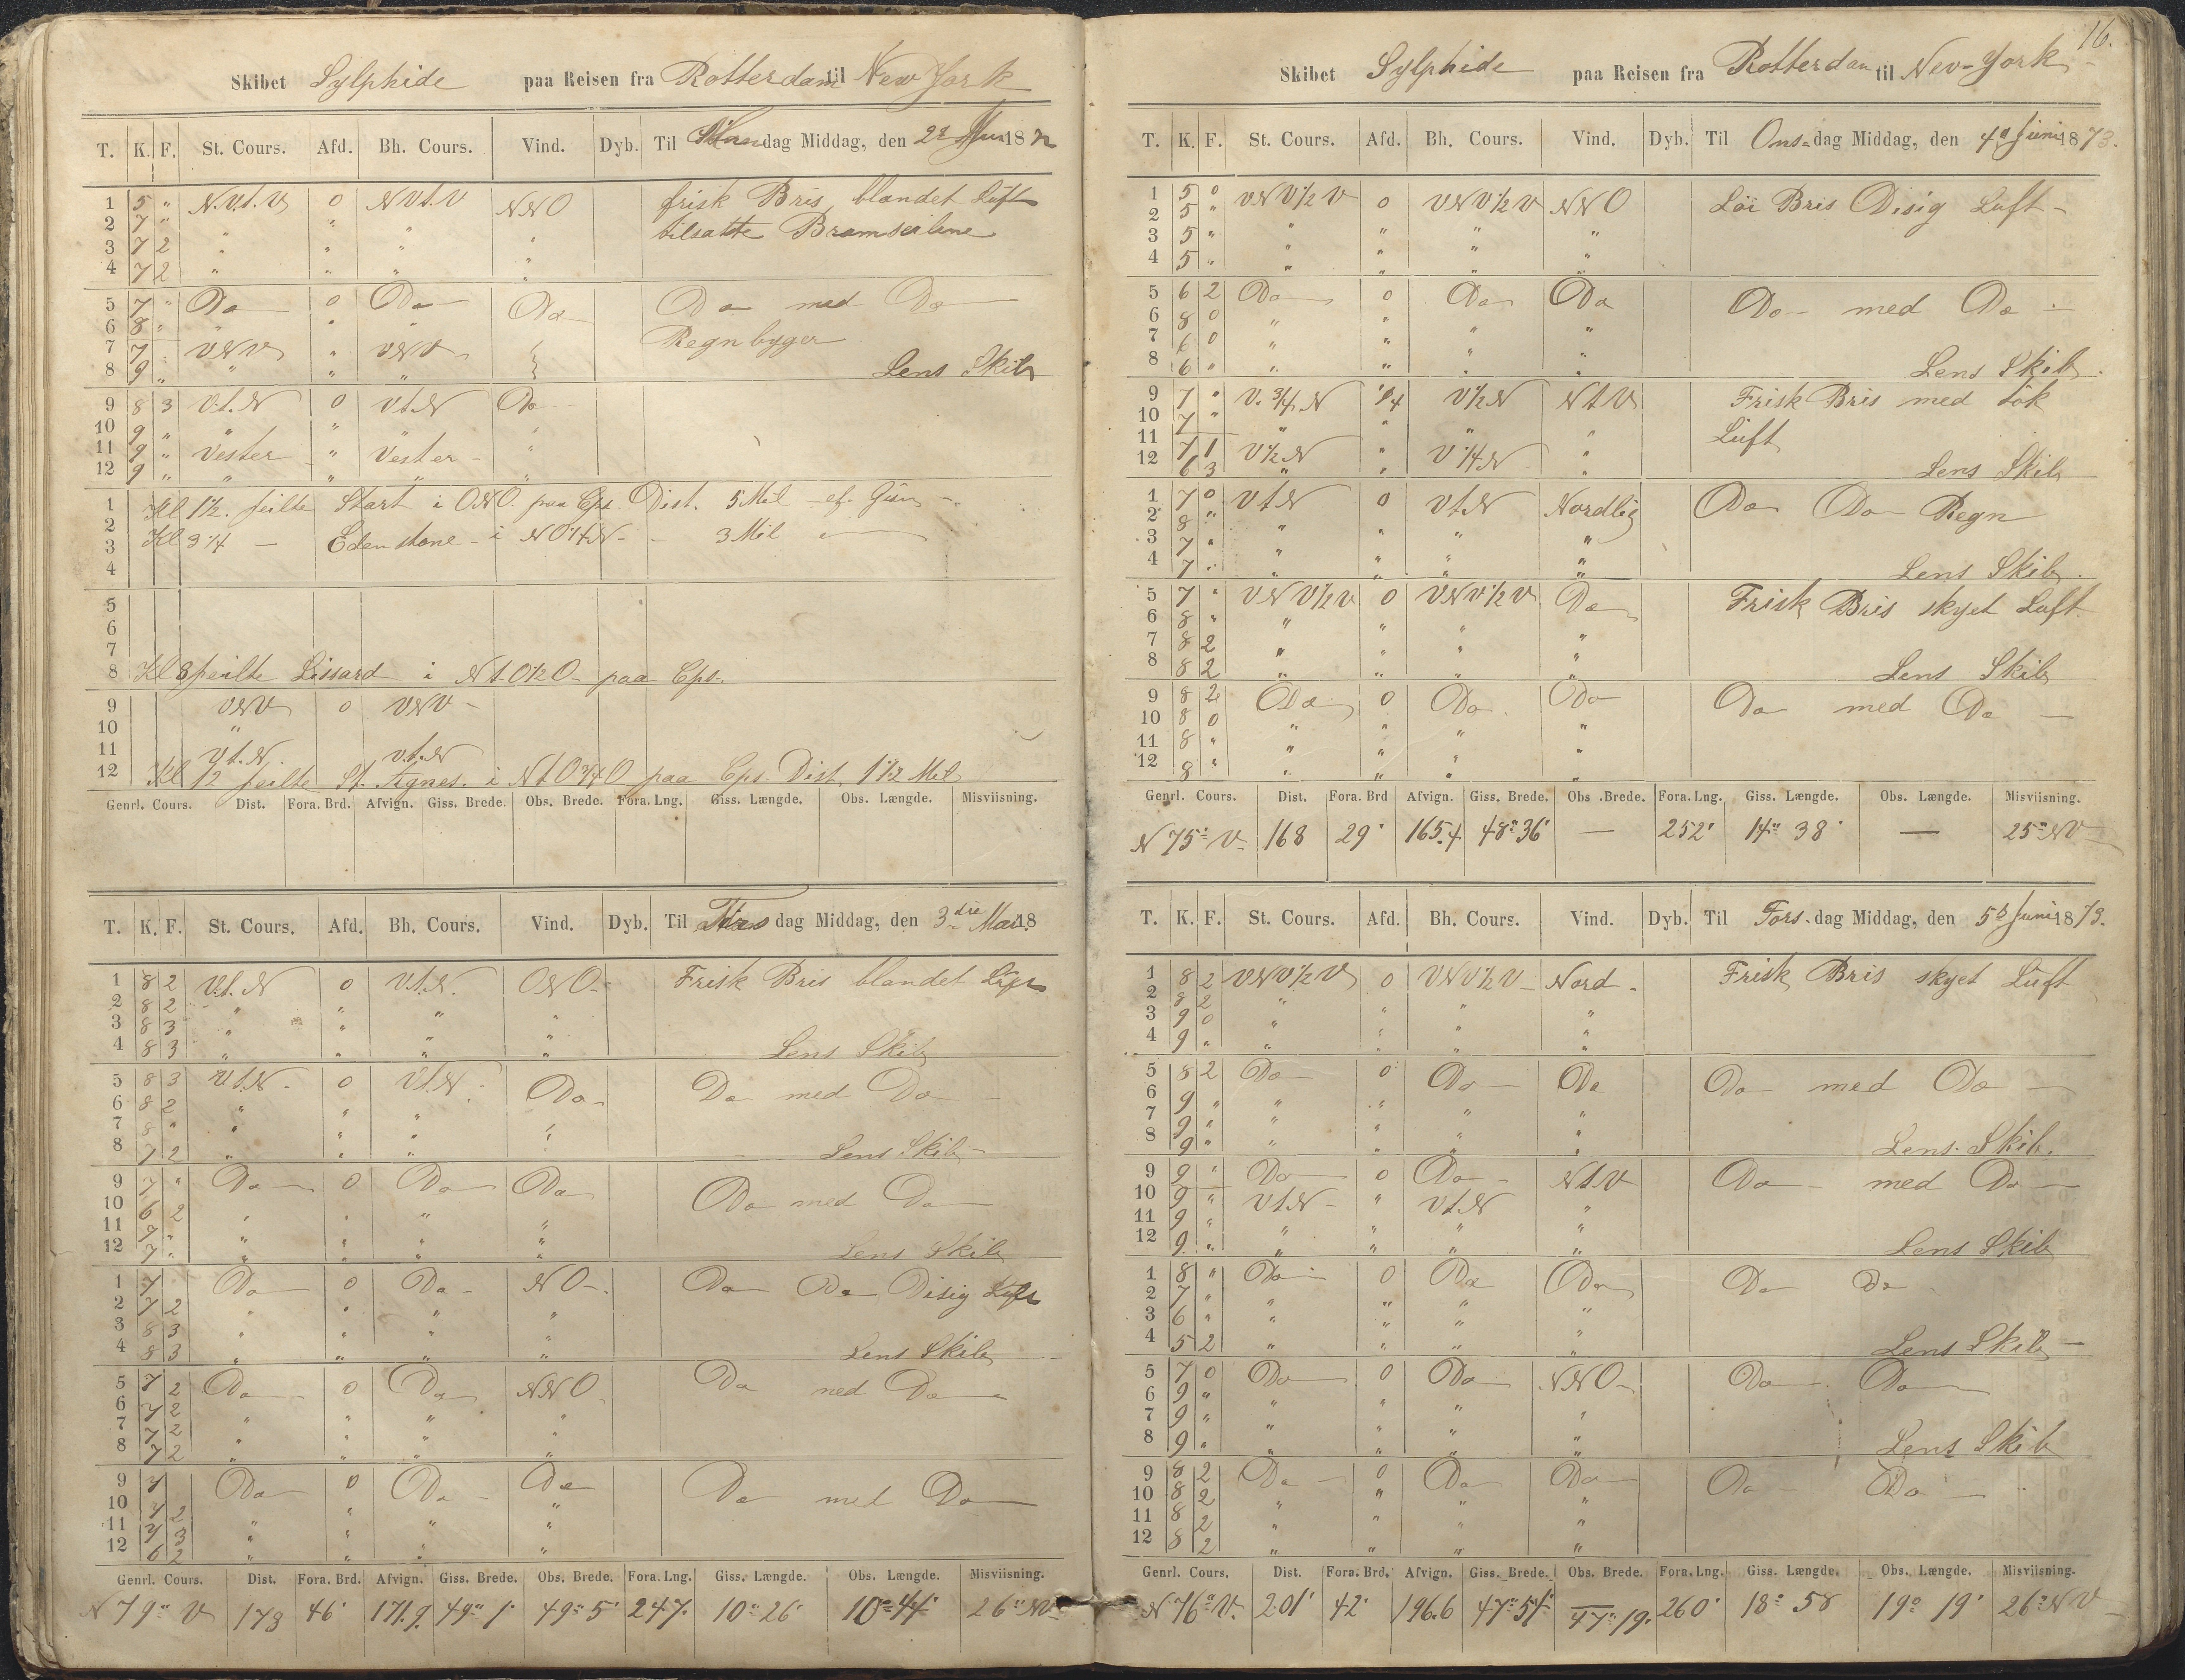 16.
Skibet Sylphide paa Reisen fra Rotterdam til New York
T. K. F. St. Cours. Afd. Bh. Cours. Vind. Dyb. Til dag Middag, den 18
1 5 " N.t.V 0 N t. V NNO frisk Bris blandet Luft
2 7 " " " " " tilsatte Bramseilene
3 7 2 " " " "
4 7 2 " " " "
5 7 " Do 0 Do Do Do med Do
6 8 " " " " Regnbyger
7 7 " VNV " VNV
8 9 " " " " Lens Skib
9 8 3 V.t.N 0 V t N Do
10 9 " " " " "
11 9 " Vester " Vester "
12 9 " " " " "
1 Kl 1½. peilte Start i ONO. paa Cps Dist. 5 Mil
2
3 Kl 3¼ — i NO¼N - 3 Mil
4
5
6
7
8 Kl 8 peilte Lissard i N t. O½O - paa Cps.
9 VNV 0 VNV
10 "
11 V t. N. V.t.N
12 Kl 12 peilte St. Agnes. i N t O¾O paa Cps. Dist. 1½ Mil
Genrl. Cours. Dist. Fora. Brd. Afvign. Giss. Brede. Obs. Brede. Fora. Lng. Giss. Længde. Obs. Længde. Misviisning.
T. K. F. St. Cours. Afd. Bh. Cours. Vind. Dyb. Til dag Middag, den 3die 18
1 8 2 V.t. N 0 V.t.N. ONO. Frisk Bris blandet Luft
2 8 2 " " " "
3 8 3 " " " "
4 8 3 " " " " Lens Skib
5 8 3 V t.N. 0 V.t.N. Do Do med Do
6 8 2 " " "
7 8 " " " " "
8 7 2 " " " Lens Skib
9 7 " Do 0 Do Do Do med Do
10 6 2 " " " "
11 9 " " " " "
12 7 " " " " " Lens Skib
1 7 Do 0 Do NO Do Do Disig Luft
2 7 2 " " " "
3 8 3 " " " "
4 8 3 " " " " Lens Skib
5 7 2 Do 0 Do NNO Do med Do
6 7 2 " " "
7 7 2 " " " "
8 7 2 " " " "
9 7 Do 0 Do Do Do med Do
10 7 2 " "
11 7 3 " " " "
12 6 2 " " " "
Genrl. Cours. Dist. Fora. Brd. Afvign. Giss. Brede. Obs. Brede. Fora. Lng. Giss. Længde. Obs. Længde. Misviisning.
N 79° V 178 46' 171.9. 49° 1' 49° 5' 247. 10° 26' 10° 44' 26° NV
Skibet Sylphide paa Reisen fra Rotterdam til New-York
T. K. F. St. Cours. Afd. Bh. Cours. Vind. Dyb. Til Ons-dag Middag, den 4de Juni 1873.
1 5 0 VNV½V 0 VNV½V NNO Löi Bris Disig Luft
2 5 "
3 5 " " " " "
4 5 " " " " "
5 6 2 Do 0 Do Do Do med Do
6 8 0 " " " "
7 6 0 " " "
8 6 " " " " " Lens Skib
9 7 " V. ¾ N ¼ V½N N t V Frisk Bris med tök
10 7 " " " " " Luft
11 7 1 V½N " V¼N "
12 6 3 " " " Lens Skib
1 7 0 V t N 0 V t. N Nordlig Do Do Regn
2 8 " " " "
3 7 " " " " "
4 7 " " " " " Lens Skib
5 7 " VNV½V 0 VNV½V Do Frisk Bris skyet Luft
6 8 " " " "
7 8 2 " " " "
8 8 2 " " " " Lens Skib
9 8 2 Do 0 Do Do Do med Do
10 8 0 " " " "
11 8 " " " " "
12 8 " " " " "
Genrl. Cours. Dist. Fora. Brd Afvign. Giss. Brede. Obs .Brede. Fora. Lng. Giss. Længde. Obs. Længde. Misviisning.
N 75° V. 168 29' 165.4 48° 36' — 252' 14° 38' — 25° NV
T. K. F. St. Cours. Afd. Bh. Cours. Vind. Dyb. Til Tors-dag Middag, den 5te Juni 1873.
1 8 2 VNV½V 0 VNV½V Nord Frisk Bris skyet Luft
2 8 2 " " " "
3 9 0 " " "
4 9 " " " " "
5 8 2 Do 0 Do Do Do med Do
6 9 " " " " "
7 9 " " " "
8 9 " " " " " Lens Skib.
9 9 " Do 0 Do N t V Do med Do
10 9 " V t. N " V t. N "
11 9 " " " " "
12 9 " " " " " Lens Skib
1 8 " Do 0 Do Do Do Do
2 7 " " " "
3 6 " " " " "
4 5 2 " " " " Lens Skib
5 7 0 Do 0 Do NNO Do Do
6 9 " " " "
7 9 " " " " "
8 9 " " " " " Lens Skib
9 8 2 Do 0 Do Do Do Do
10 8 2 " " " "
11 8 2 " " " "
12 8 2 " " " "
Genrl. Cours. Dist. Fora. Brd. Afvign. Giss. Brede. Obs. Brede. Fora. Lng. Giss. Længde. Obs. Længde. Misviisning.
N 76° V. 201' 42' 196.6 47° 54' 47° 19' 260' 18° 58 19° 19' 26° NV